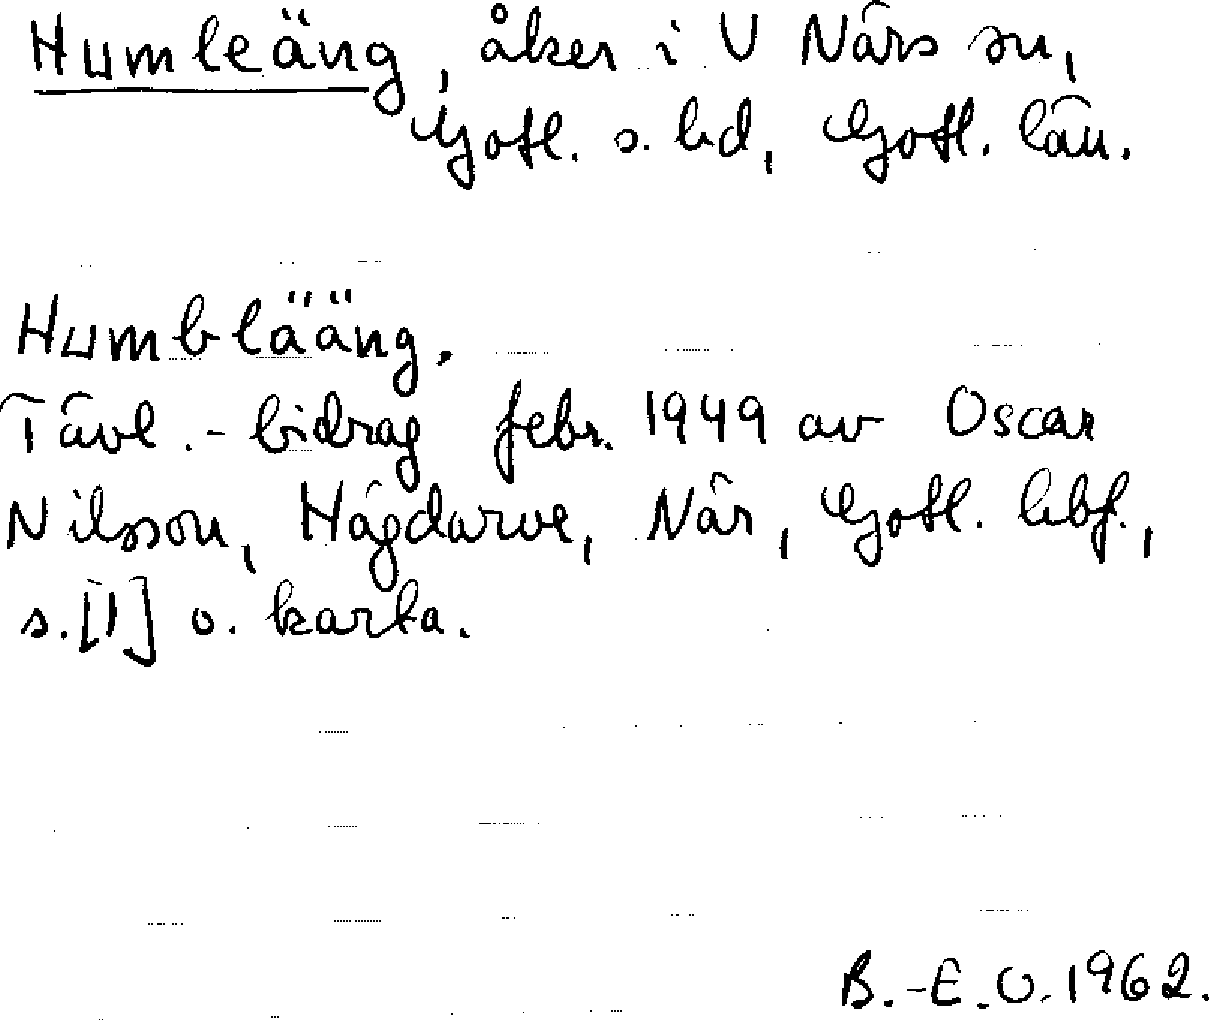 Humleäng, åker i V Närs sn,
Gotl. s. hd, Gotl. län.
Humblääng.
Tävl.-bidrag febr. 1949 av Oscar
Nilsson, Hägdarve, När, Gotl. hbf.,
s. [1] o. karta.
B.-E.O. 1962.